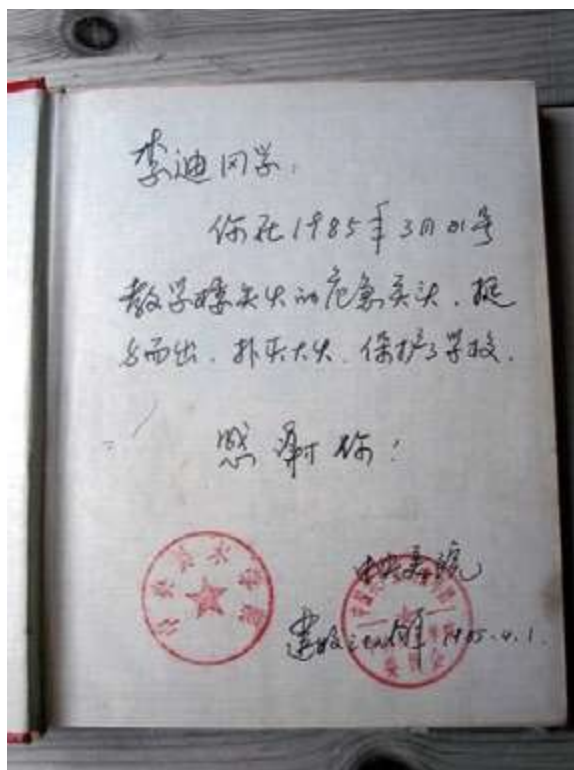 李迪同学：
你在1985年3月01号
教学楼失火的危急关头，挺
身而出，扑灭大火，保护了学校。
感谢你！
中央美院
1985.4.1.